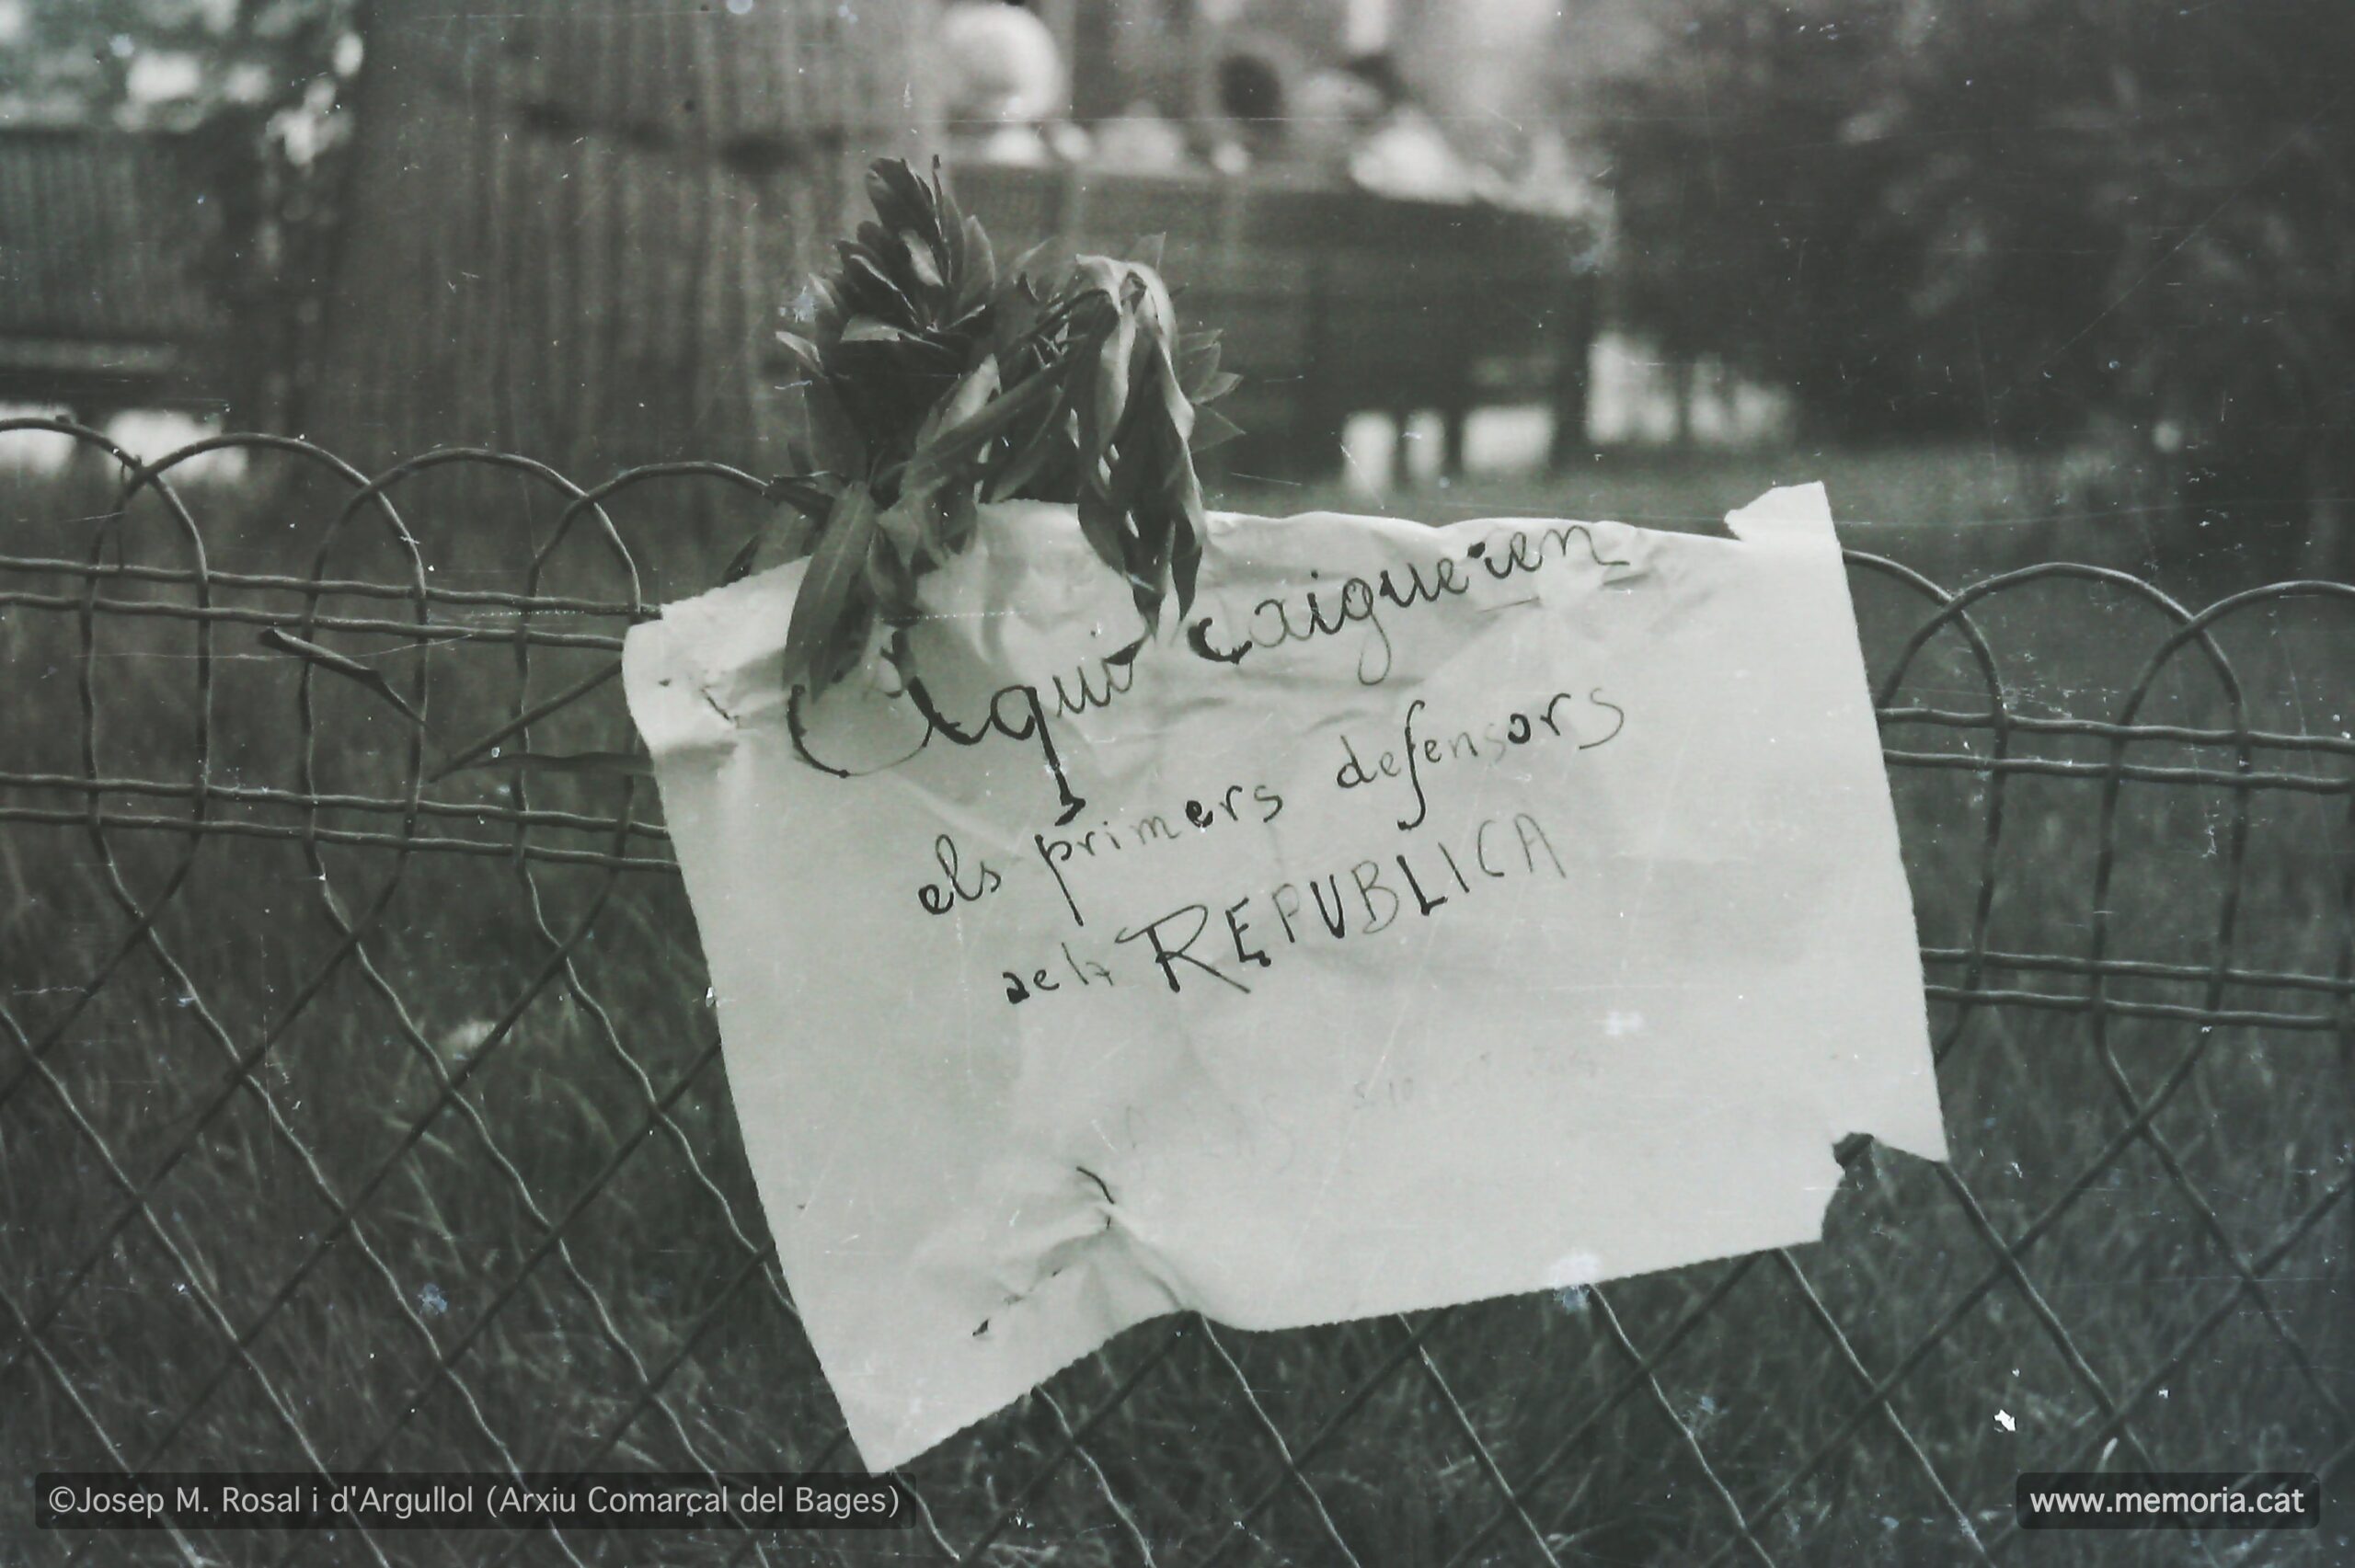 Aqui caigueren
els primers defensors
de la REPUBLICA
©Josep M. Rosal i d'Argullol (Arxiu Comarcal del Bages)
www.memoria.cat